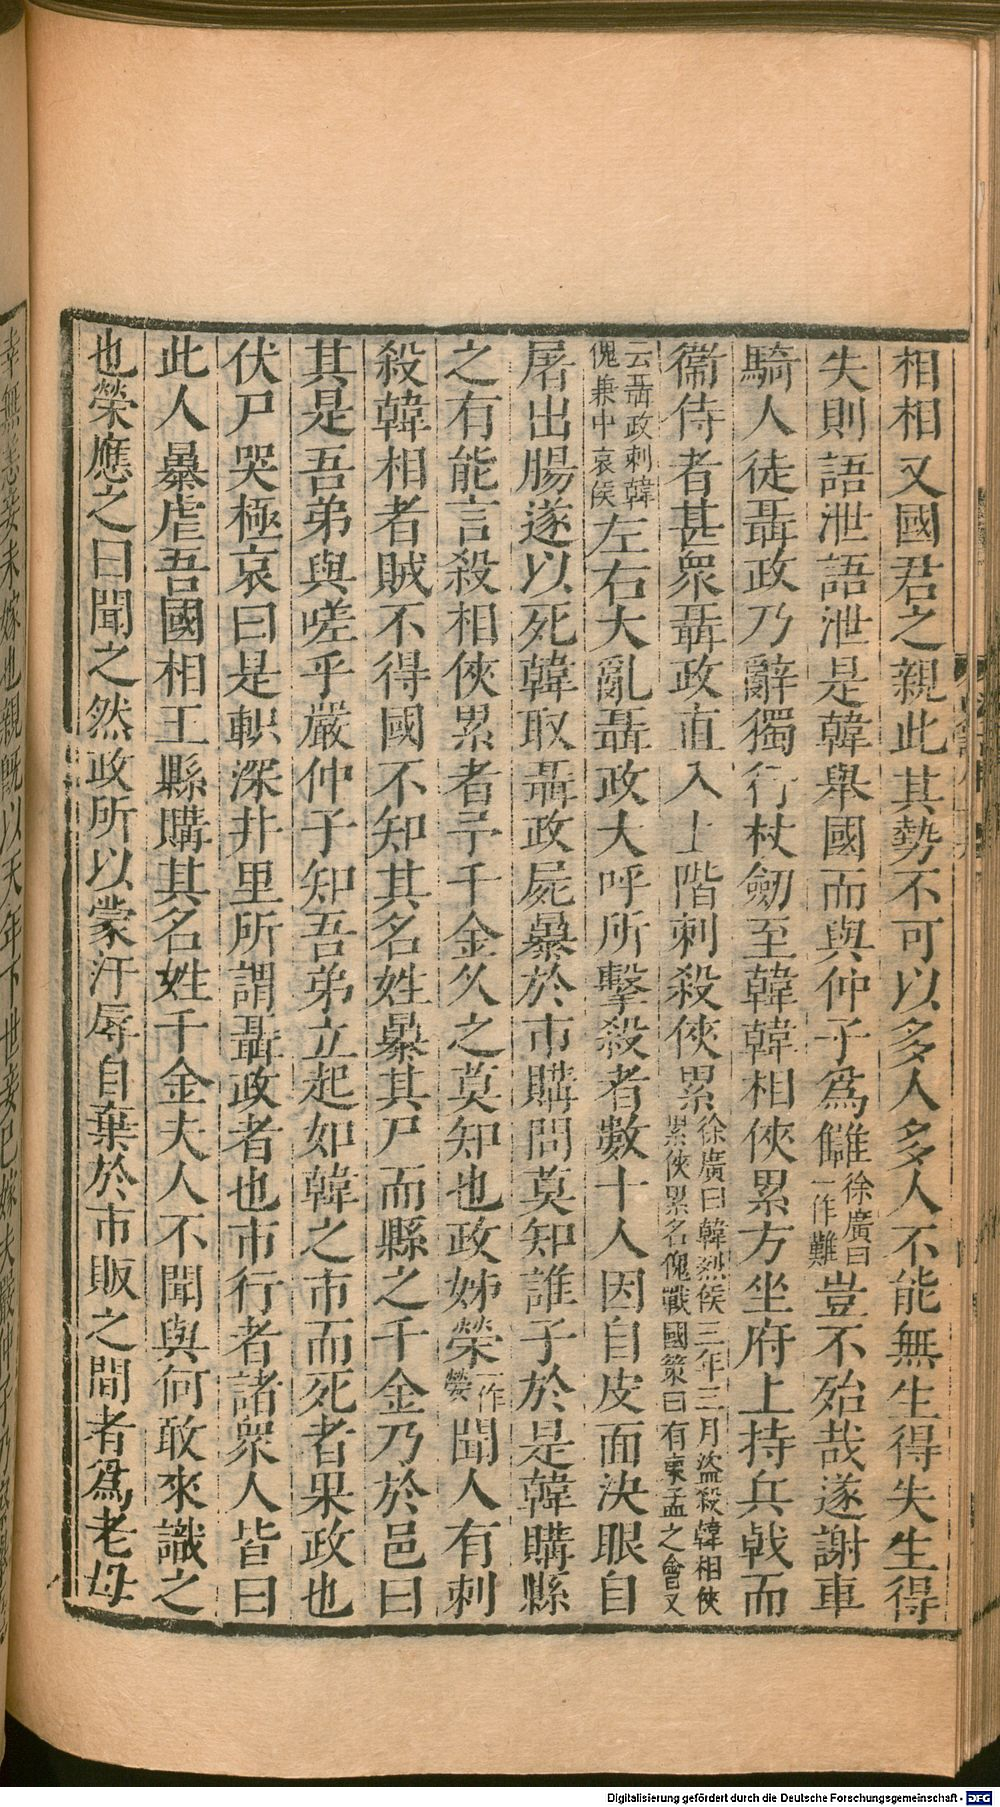 相相又國君之親此其勢不可以多人多人不能無生得失生得
失則語泄語泄是韓舉國而與仲子爲讎徐廣曰一作難豈不殆哉遂謝車
騎人徒聶政乃辭獨行杖劒至韓韓相俠累方坐府上持兵戟而
衞侍者甚衆聶政直入上階刺殺俠累徐廣曰韓烈侯三年三月盜殺韓相俠累俠累名傀戰國策曰有東孟之會又
云聶政刺韓傀兼中哀侯左右大亂聶政大呼所擊殺者數十人因自皮面決眼自
屠出腸遂以死韓取聶政屍暴於市購問莫知誰子於是韓購縣
之有能言殺相俠累者予千金久之莫知也政姊榮一作嫈聞人有刺
殺韓相者賊不得國不知其名姓暴其尸而縣之千金乃於邑曰
其是吾弟與嗟乎嚴仲子知吾弟立起如韓之市而死者果政也
伏尸哭極哀曰是軹深井里所謂聶政者也市行者諸衆人皆曰
此人暴虐吾國相王縣購其名姓千金夫人不聞與何敢來識之
也榮應之曰聞之然政所以蒙汙辱自棄於市販之間者爲老母
幸無恙妾未嫁也親旣以天年下世妾已嫁夫嚴仲子乃
Digitalisierung gefördert durch die Deutsche Forschungsgemeinschaft - DFG